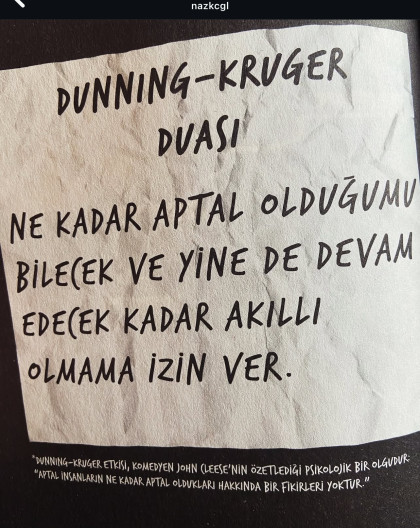 nazkcgl
DUNNING-KRUGER
DUASI
NE KADAR APTAL OLDUĞUMU
BİLECEK VE YİNE DE DEVAM
EDECEK KADAR AKILLI
OLMAMA İZİN VER.
"DUNNING-KRUGER ETKİSİ, KOMEDYEN JOHN CLEESE'NİN ÖZETLEDİĞİ PSİKOLOJİK BİR OLGUDUR:
"APTAL İNSANLARIN NE KADAR APTAL OLDUKLARI HAKKINDA BİR FİKİRLERİ YOKTUR."